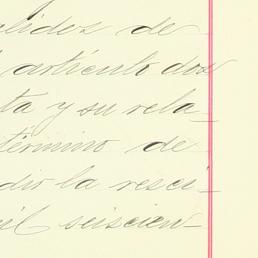 alidez de
artículo dos
ta y su rela_
término de
dio la resci_
il seiscien_